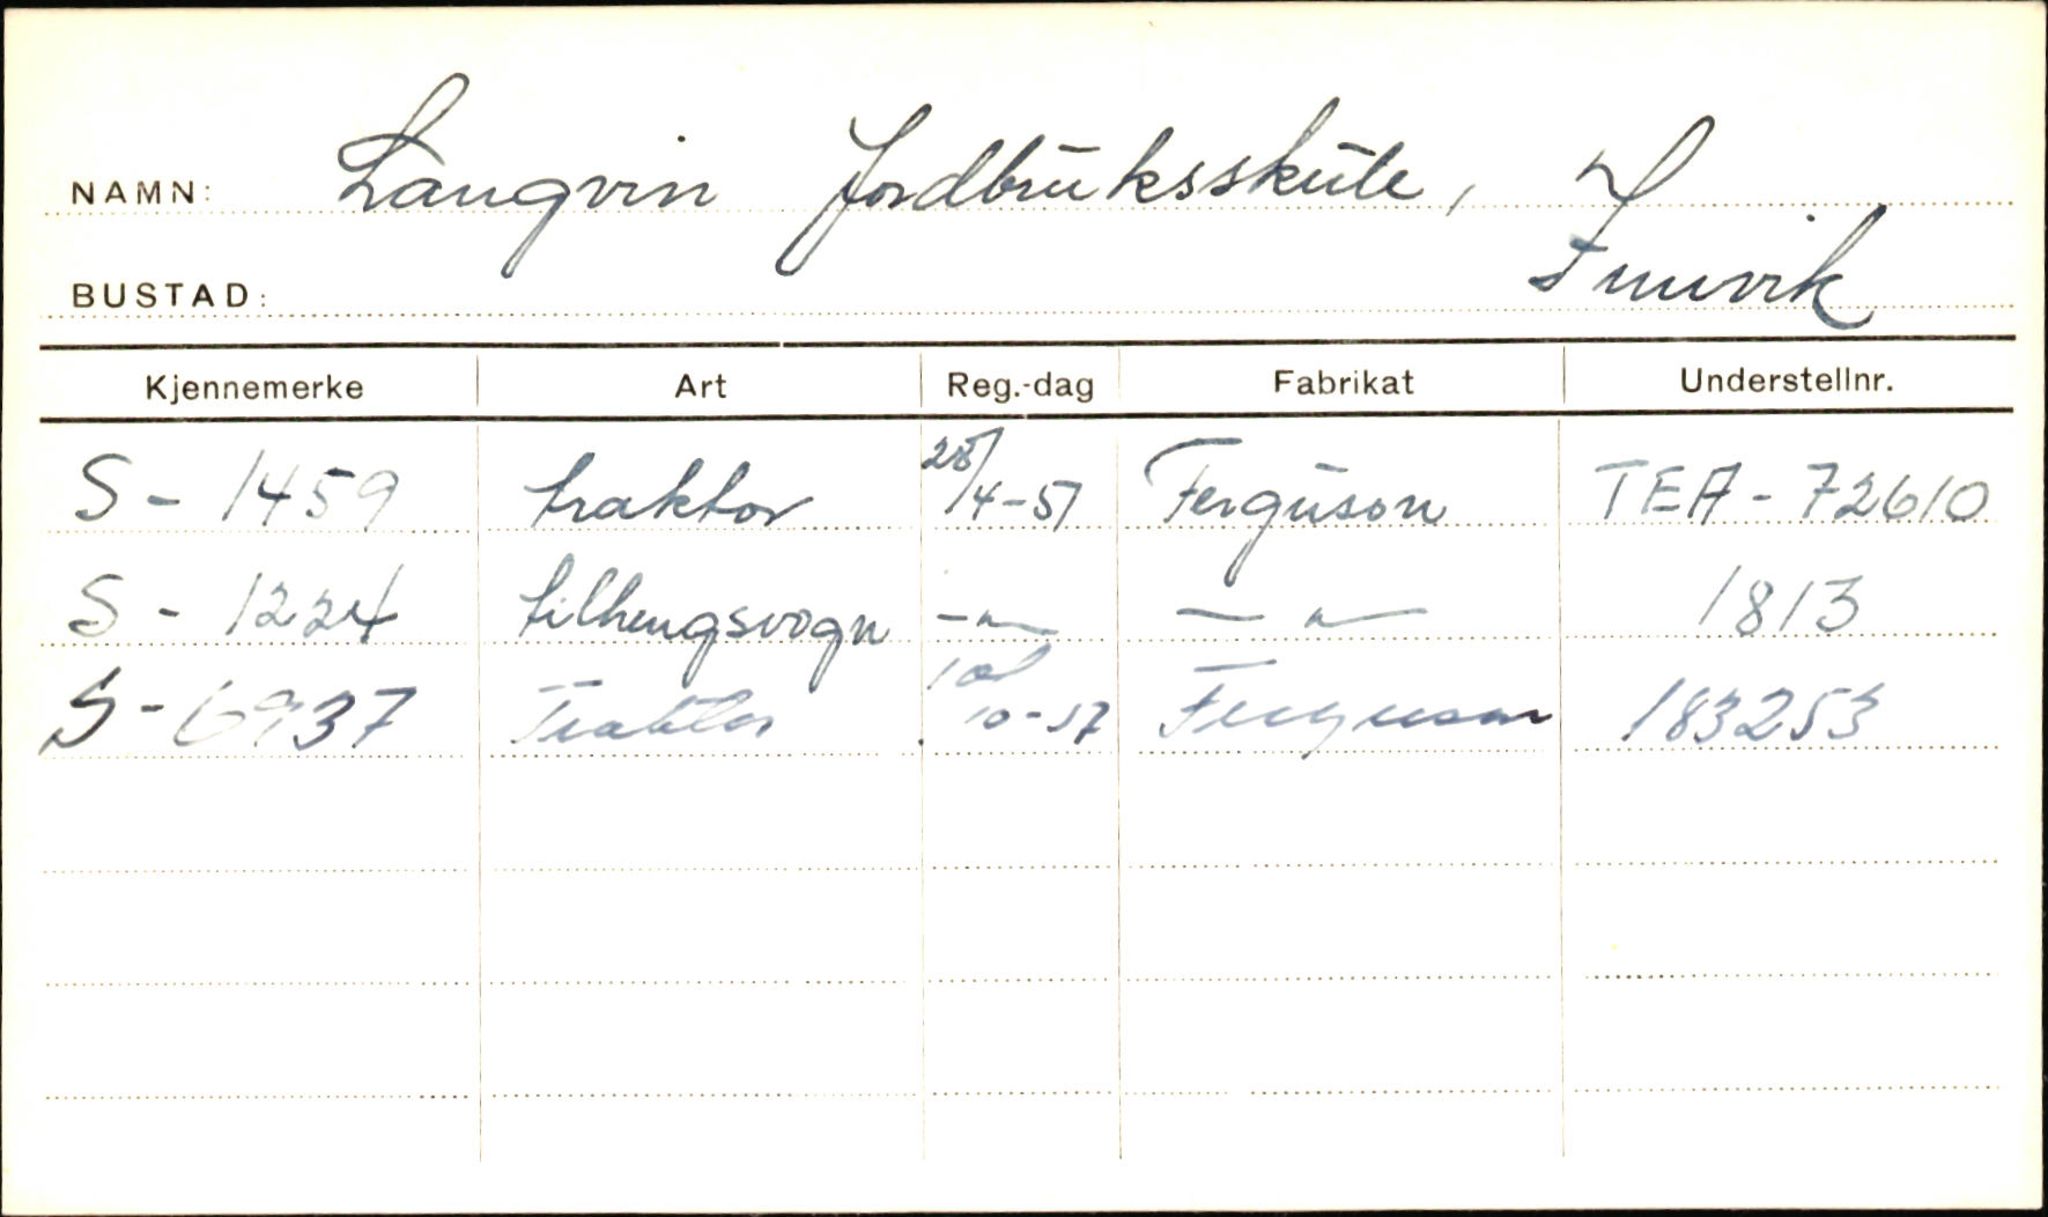 NAMN: Langvin Jordbruksskule,
BUSTAD: Innvik
Kjennemerke Art Reg.-dag Fabrikat Understellnr.
S - 1459 traktor 28/4-51 Ferguson TEA - 72610
S - 1224 tilhengsvogn -"- -"- 1813
S - 6937 Traktor 10-57 Ferguson 183253